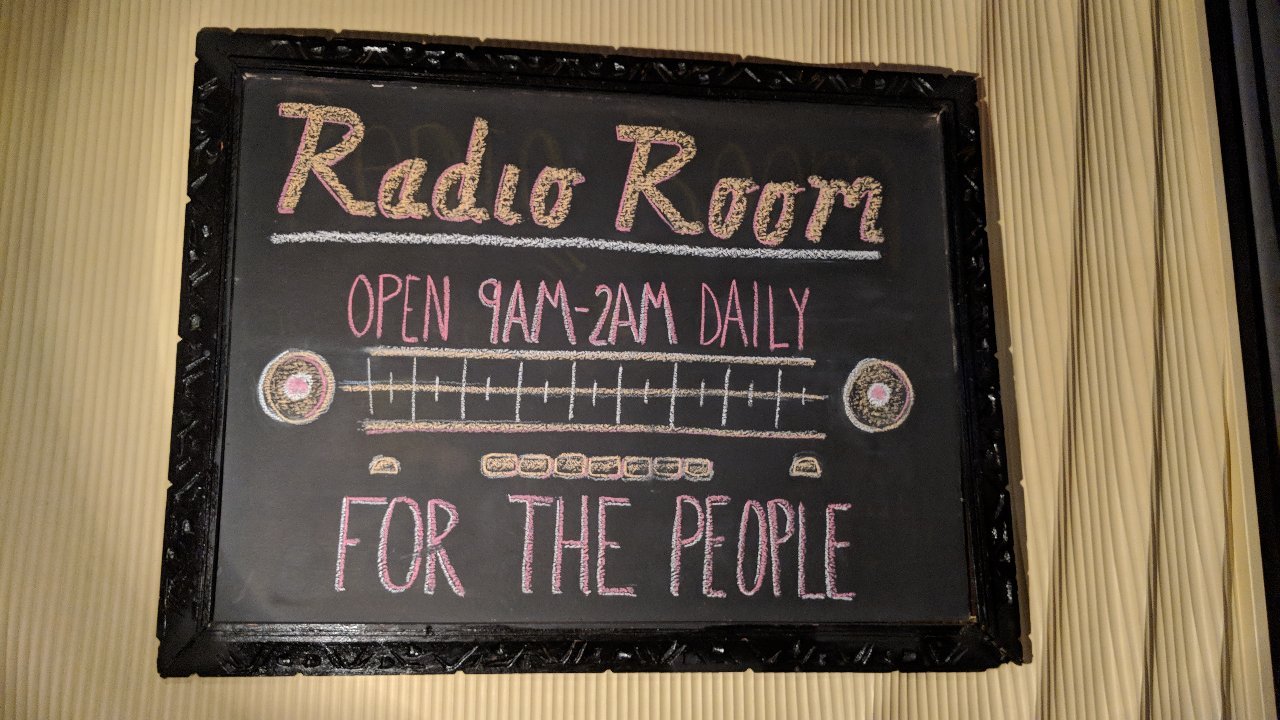 Radio Room
OPEN 9AM-2AM DAILY
FOR THE PEOPLE